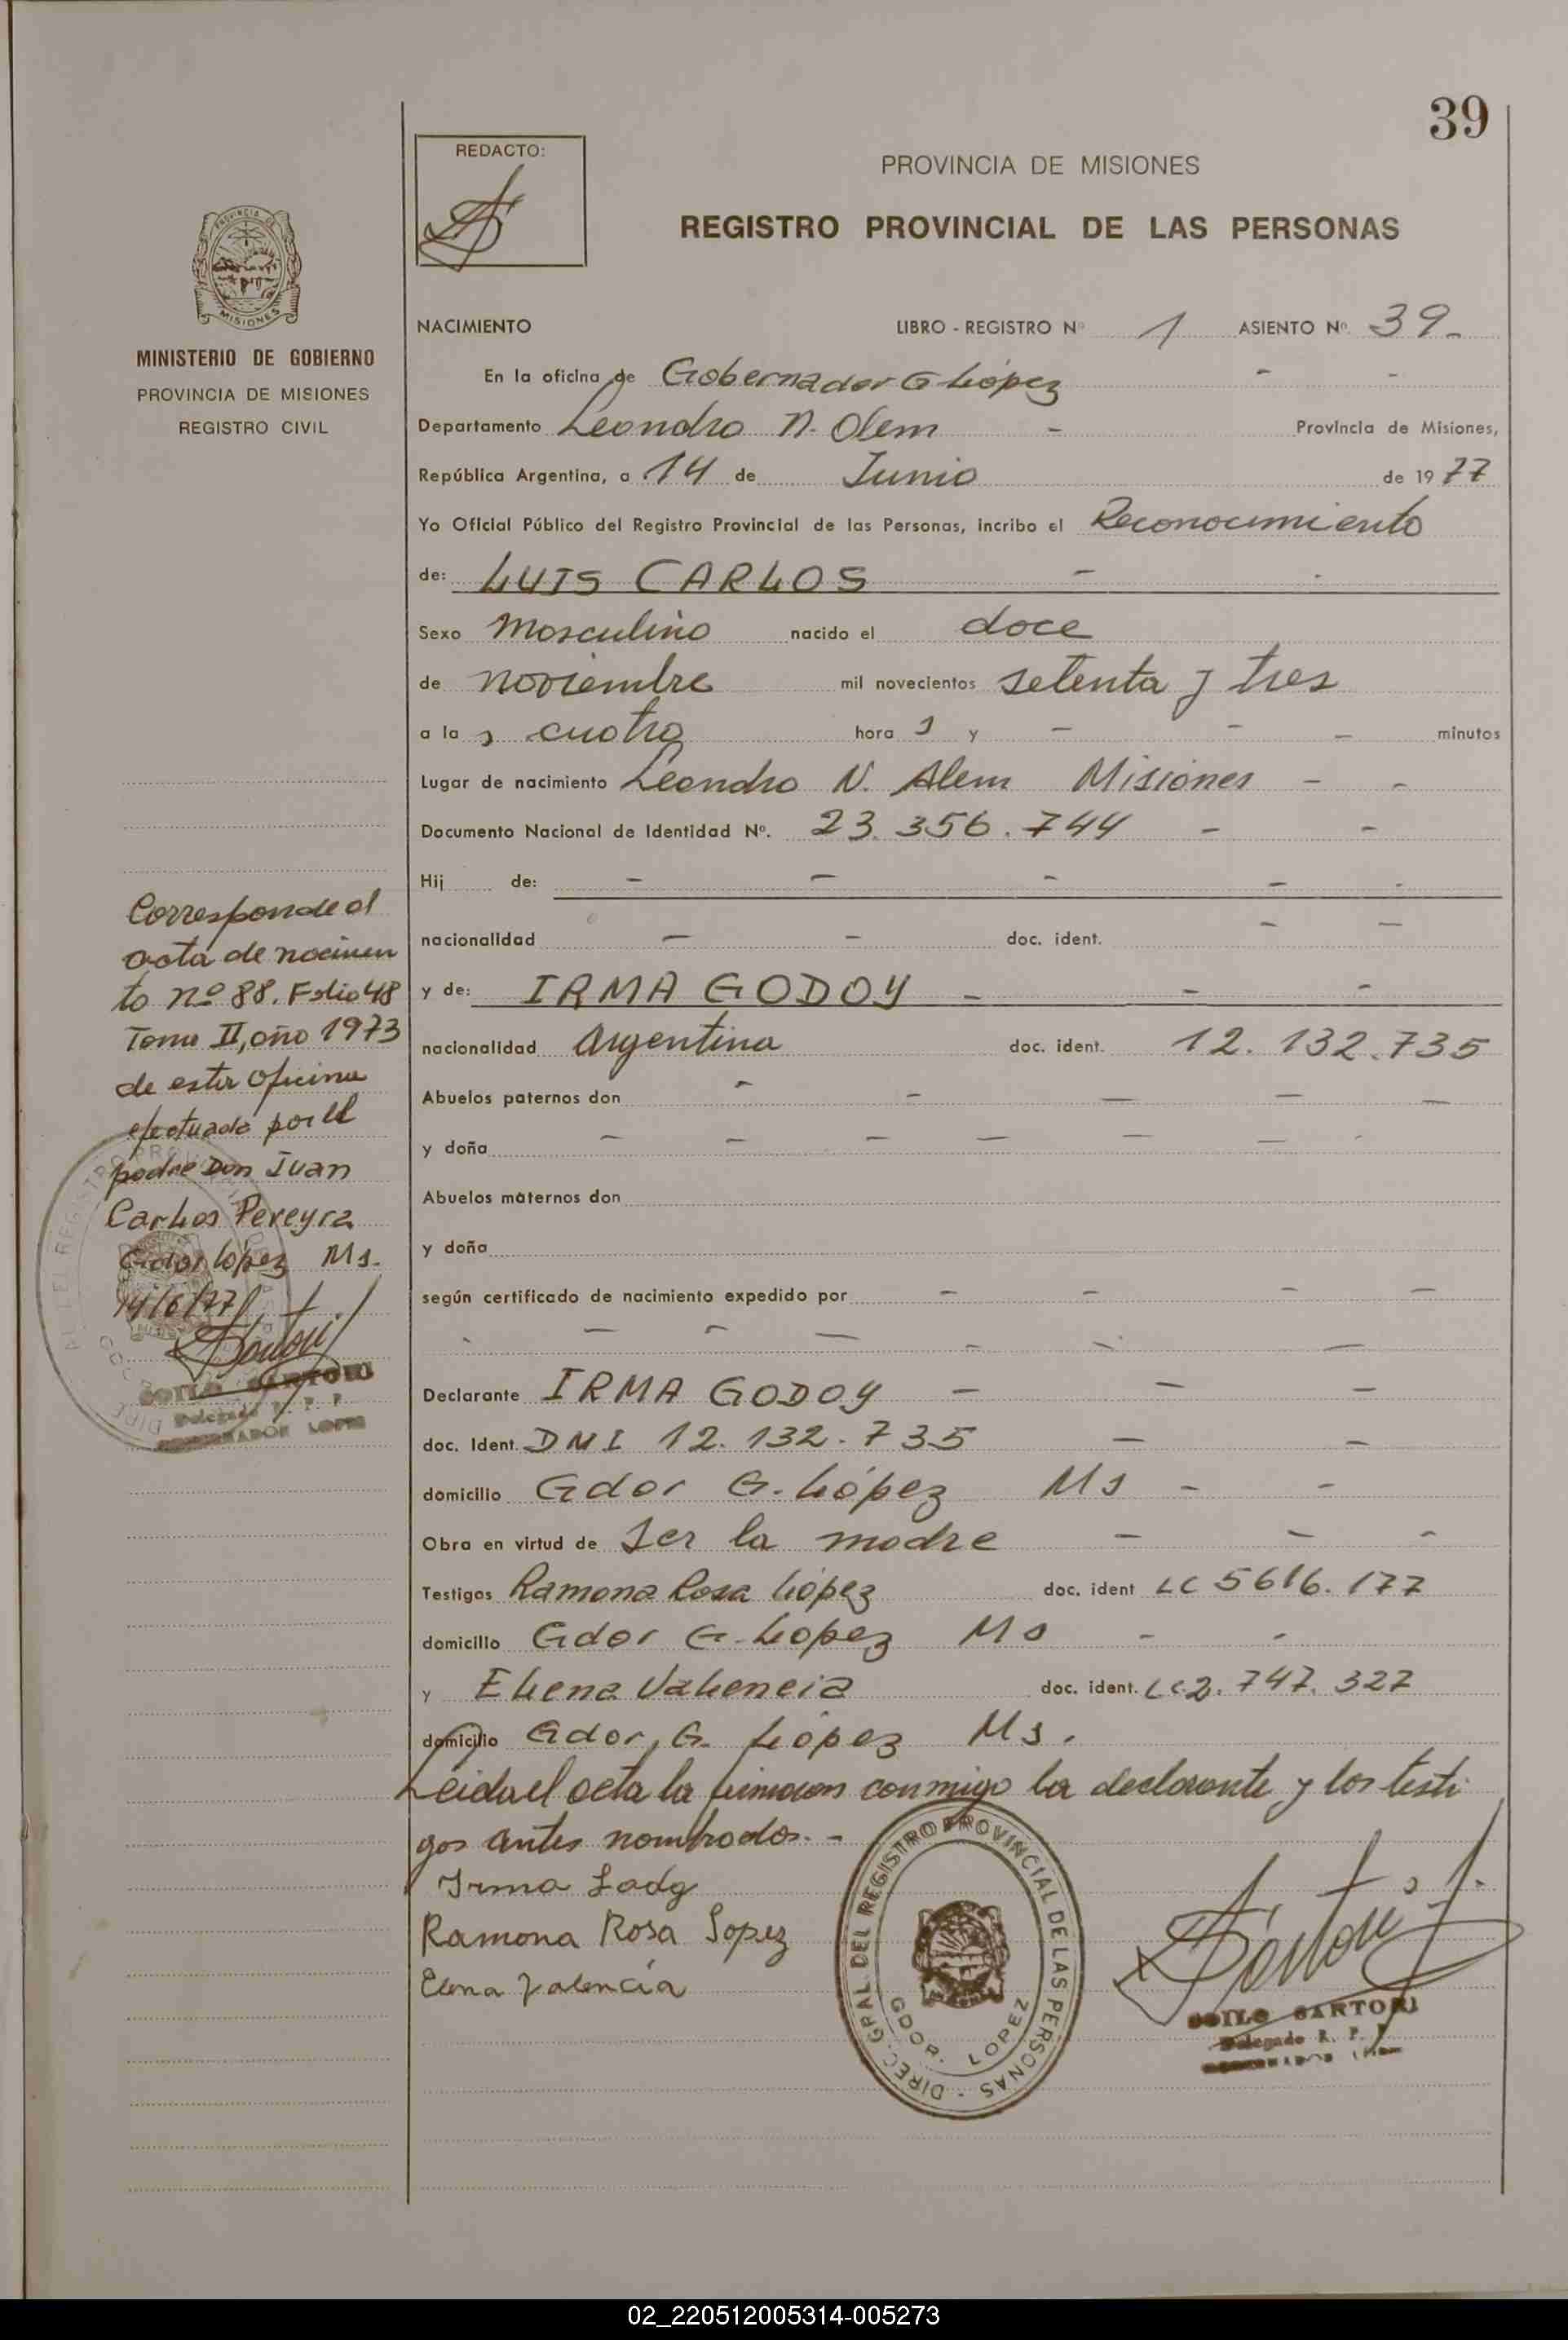 39
REDACTO:
PROVINCIA DE MISIONES
REGISTRO PROVINCIAL DE LAS PERSONAS
PROVINCIA DE
MISIONES
MINISTERIO DE GOBIERNO
PROVINCIA DE MISIONES
REGISTRO CIVIL
NACIMIENTO LIBRO - REGISTRO Nº 1 ASIENTO Nº 39-
En la oficina de Gobernador G López - -
Departamento Leandro N. Alem - Provincia de Misiones,
República Argentina, a 14 de Junio de 1977
Yo Oficial Público del Registro Provincial de las Personas, incribo el Reconocimiento
de: LUIS CARLOS - -
Sexo Masculino nacido el doce
de noviembre mil novecientos setenta y tres
a la s cuatro hora s y - - - minutos
Lugar de nacimiento Leandro N. Alem Misiones - -
Documento Nacional de Identidad Nº. 23.356.744 - -
Hij de: - - - - -
nacionalidad - - doc. ident. - -
y de: IRMA GODOY - - -
nacionalidad Argentina doc. ident. 12.132.735
Abuelos paternos don - - - - -
y doña - - - - - - -
Abuelos maternos don
y doña
según certificado de nacimiento expedido por - - - -
- - - - - - -
Declarante IRMA GODOY - - -
doc. Ident. DNI 12.132.735 - -
domicilio Gdor G. López Ms - -
Obra en virtud de Ser la madre - - -
Testigos Ramona Rosa López doc. ident LC 5616.177
domicilio Gdor G. Lopez Ms - -
y Elena Valencia doc. ident. LC 2.747.327
domicilio Gdor, G. López Ms.
Leida el acta la firmaron conmigo la declarante y los testi
gos antes nombrados. -
Irma
Ramona Rosa Lopez
Elena Valencia
Corresponde al
acta de nacimien
to nº 88. Folio 48
Tomo II, año 1973
de esta oficina
efectuada por el
padre Don Juan
Carlos Pereyra
Gdor López Ms.
14/6/77
SOILO SARTORI
Delegado R. P. P.
GOBERNADOR LOPEZ
DIREC. GRAL. DEL REGISTRO PROVINCIAL DE LAS PERSONAS -
GDOR. LOPEZ
SOILO SARTORI
Delegado R. P. P.
02_220512005314-005273